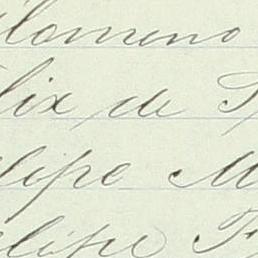 ilomeno
lix de S
elipe M
elipe F